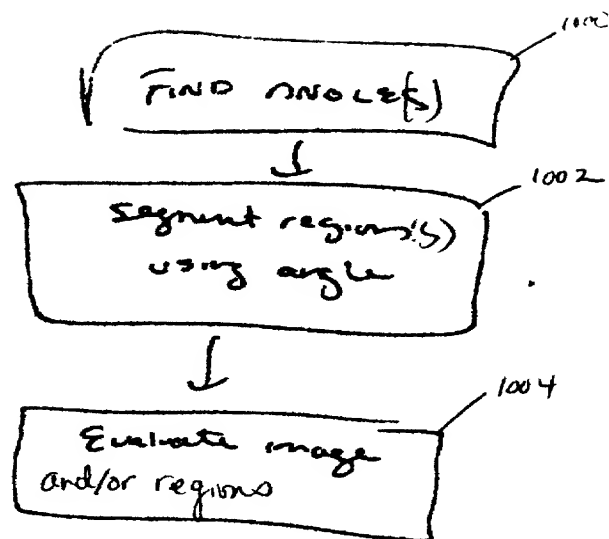 1000
FIND ANGLE(S)
1002
segment region(s)
using angle
1004
Evaluate image
and/or regions